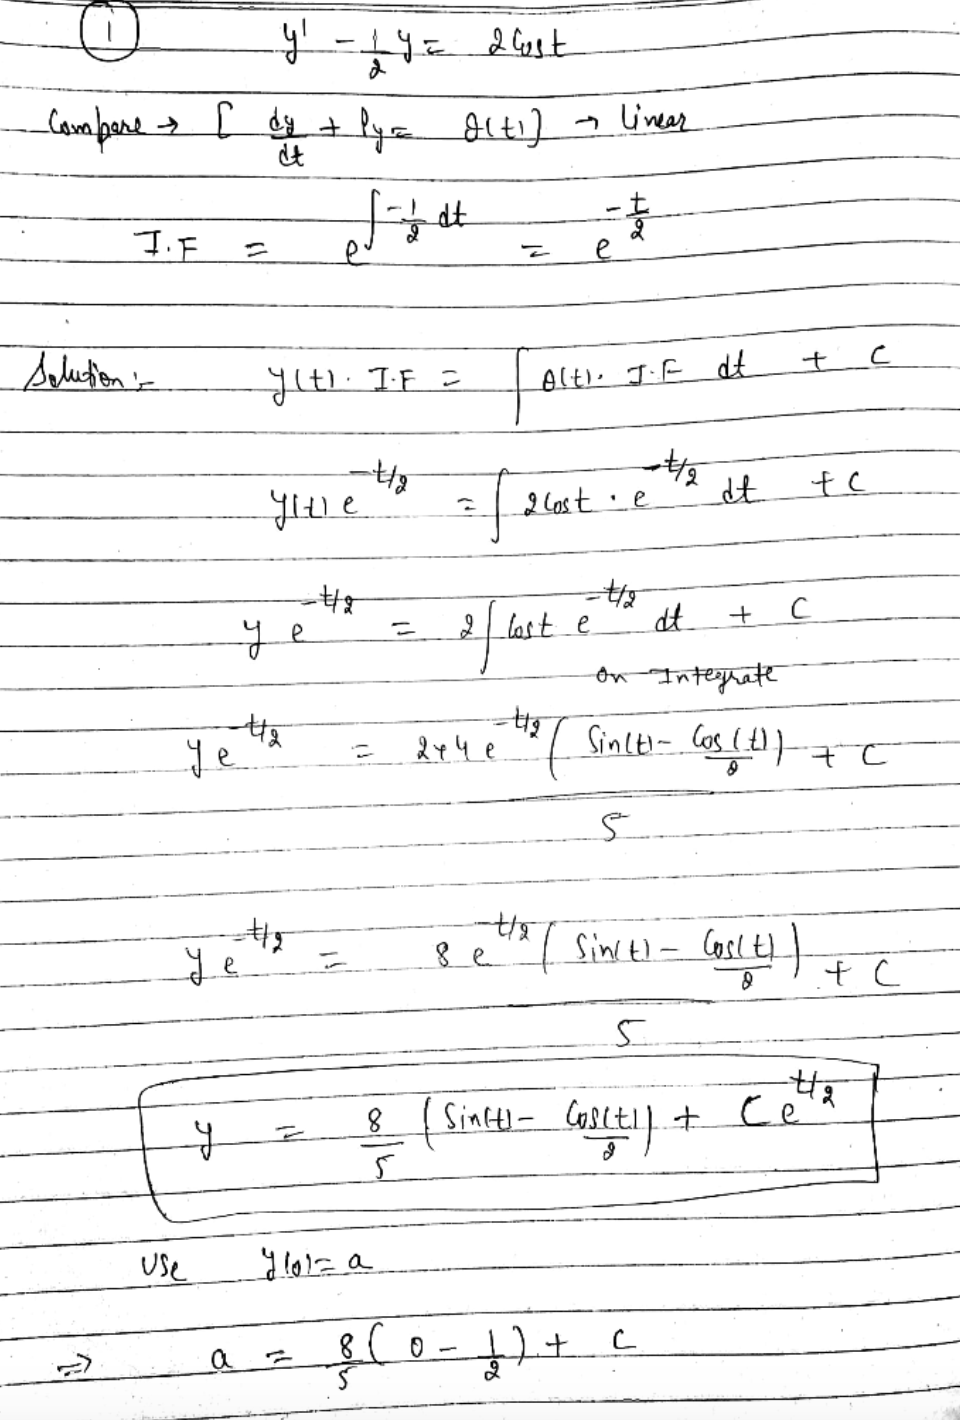 1 y' - 1/2 y = 2 Cost
Compare → [ dy/dt + Py = Q(t) ] → linear
I.F = e^∫-1/2 dt = e^-t/2
Solution :- y(t). I.F = ∫ Q(t). I.F dt + C
y(t) e^-t/2 = ∫ 2 Cost · e^-t/2 dt + C
y e^-t/2 = 2 ∫ Cost e^-t/2 dt + C
on Integrate
y e^-t/2 = 2×4 e^-t/2 ( Sin(t) - Cos(t)/2 ) / 5 + C
y e^-t/2 = 8 e^-t/2 ( Sin(t) - Cos(t)/2 ) / 5 + C
y = 8/5 ( Sin(t) - Cos(t)/2 ) + C e^t/2
Use y(0) = a
⇒ a = 8/5 ( 0 - 1/2 ) + C